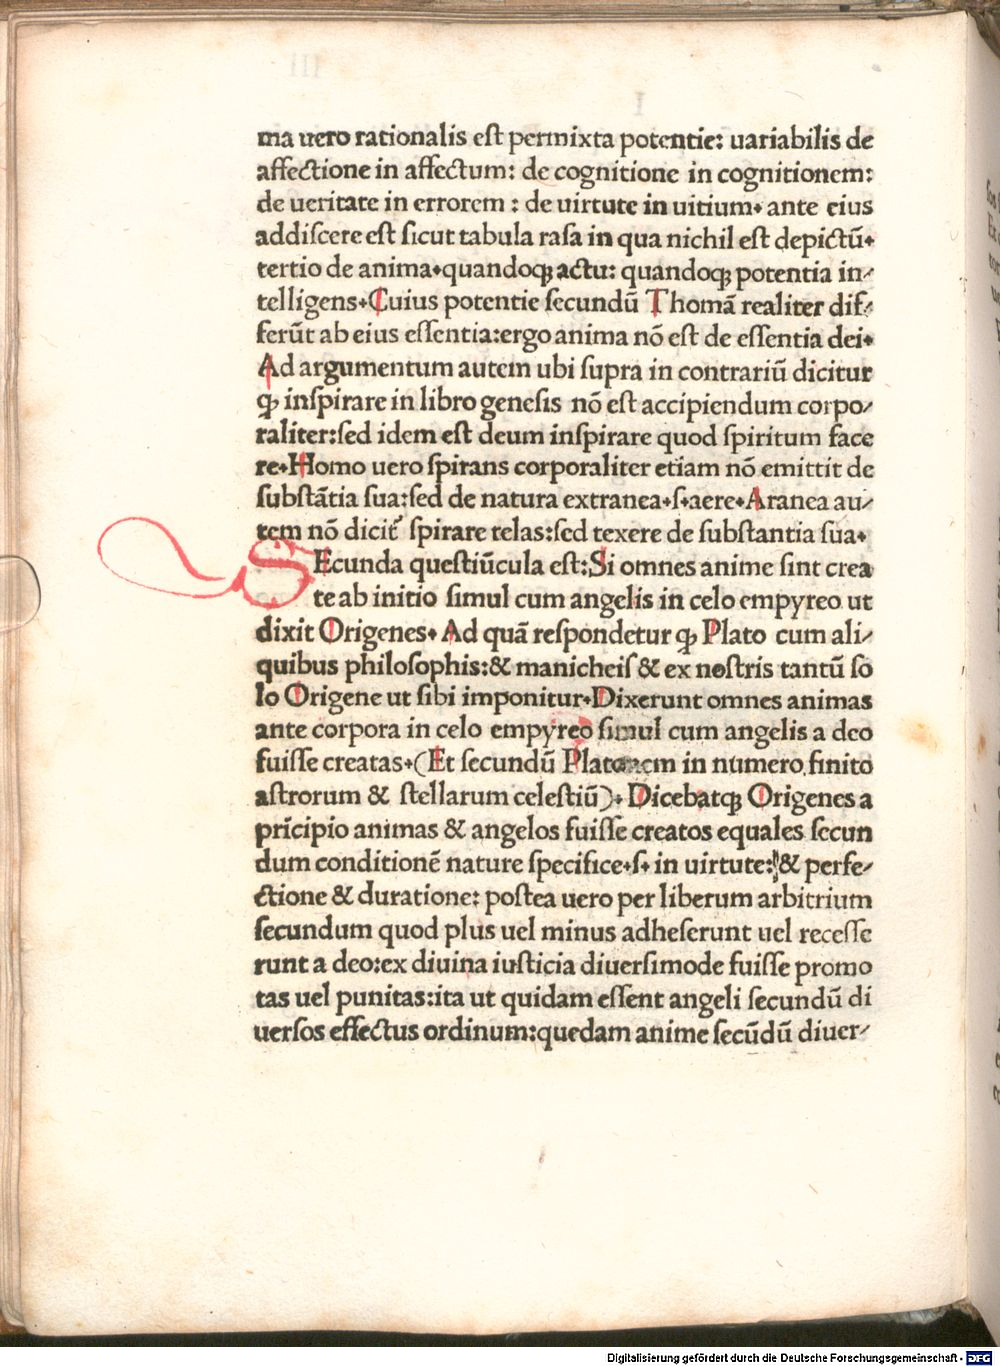 ma uero rationalis eſt permixta potentie: uariabilis de
affectione in affectum: de cognitione in cognitionem:
de ueritate in errorem : de uirtute in uitium. ante eius
addiſcere eſt ſicut tabula raſa in qua nichil eſt depictū.
tertio de anima.quandoqꝫ actu: quandoqꝫ potentia in-
telligens.Cuius potentie ſecundū Thomā realiter dif-
ferūt ab eius eſſentia:ergo anima nō eſt de eſſentia dei.
Ad argumentum autem ubi ſupra in contrariū dicitur
ꝙ inſpirare in libro geneſis nō eſt accipiendum corpo-
raliter:ſed idem eſt deum inſpirare quod ſpiritum face
re.Homo uero ſpirans corporaliter etiam nō emittit de
ſubſtātia ſua:ſed de natura extranea.ſ.aere.Aranea au-
tem nō dicit᷑ ſpirare telas:ſed texere de ſubſtantia ſua.
SEcunda queſtiūcula eſt:Si omnes anime ſint crea
te ab initio ſimul cum angelis in celo empyreo ut
dixit Origenes. Ad quā reſpondetur ꝙ Plato cum ali-
quibus philoſophis:& manicheiſ & ex noſtris tantū ſo
lo Origene ut ſibi imponitur.Dixerunt omnes animas
ante corpora in celo empyreo ſimul cum angelis a deo
fuiſſe creatas.(Et ſecundū Platonem in numero finito
aſtrorum & ſtellarum celeſtiū). Dicebatqꝫ Origenes a
prīcipio animas & angelos fuiſſe creatos equales ſecun
dum conditionē nature ſpecifice.ſ. in uirtute: & perfe-
ctione & duratione: poſtea uero per liberum arbitrium
ſecundum quod plus uel minus adheſerunt uel receſſe
runt a deo:ex diuina iuſticia diuerſimode fuiſſe promo
tas uel punitas:ita ut quidam eſſent angeli ſecundū di
uerſos effectus ordinum:quedam anime ſecūdū diuer-
Digitalisierung gefördert durch die Deutsche Forschungsgemeinschaft - DFG